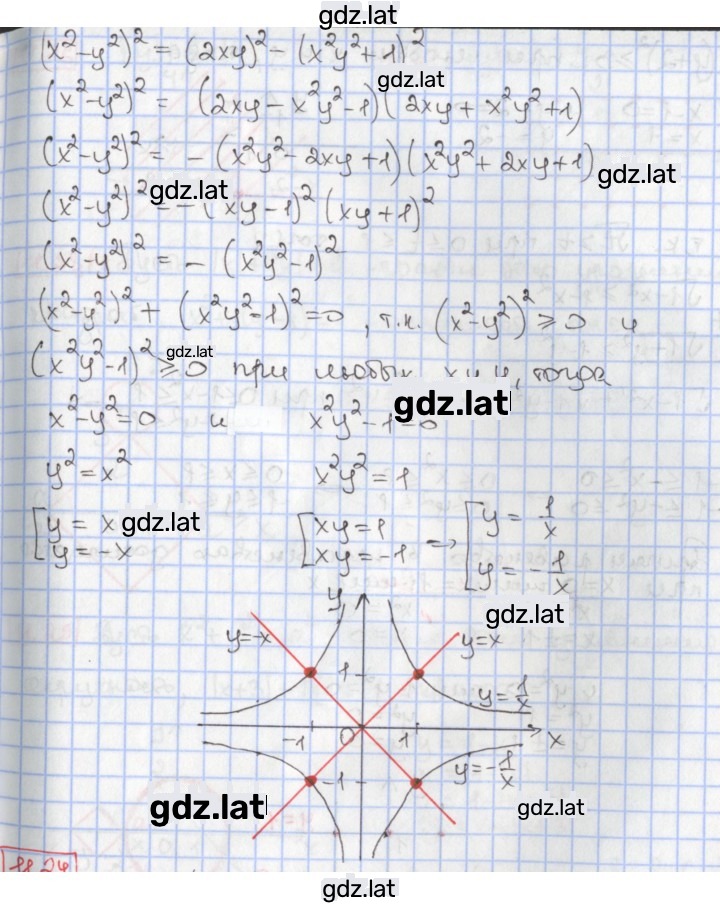 gdz.lat
(x²-y²)² = (2xy)² - (x²y²+1)²
gdz.lat
(x²-y²)² = (2xy - x²y²-1)(2xy + x²y²+1)
(x²-y²)² = -(x²y²-2xy+1)(x²y²+2xy+1)
gdz.lat
gdz.lat
(x²-y²)² = -(xy-1)²(xy+1)²
(x²-y²)² = -(x²y²-1)²
(x²-y²)² + (x²y²-1)² = 0, т.к. (x²-y²)² ≥ 0 и
gdz.lat
(x²y²-1)² ≥ 0 при любых x и y, тогда
gdz.lat
x²-y²=0 и x²y²-1=0
y²=x² x²y²=1
[y = x gdz.lat [xy=1 → [y = 1/x
y=-x xy=-1 y = -1/x
gdz.lat
y
y=-x y=x
1
y=1/x
-1 0 1 x
-1 y=-1/x
gdz.lat gdz.lat
11.24
gdz.lat